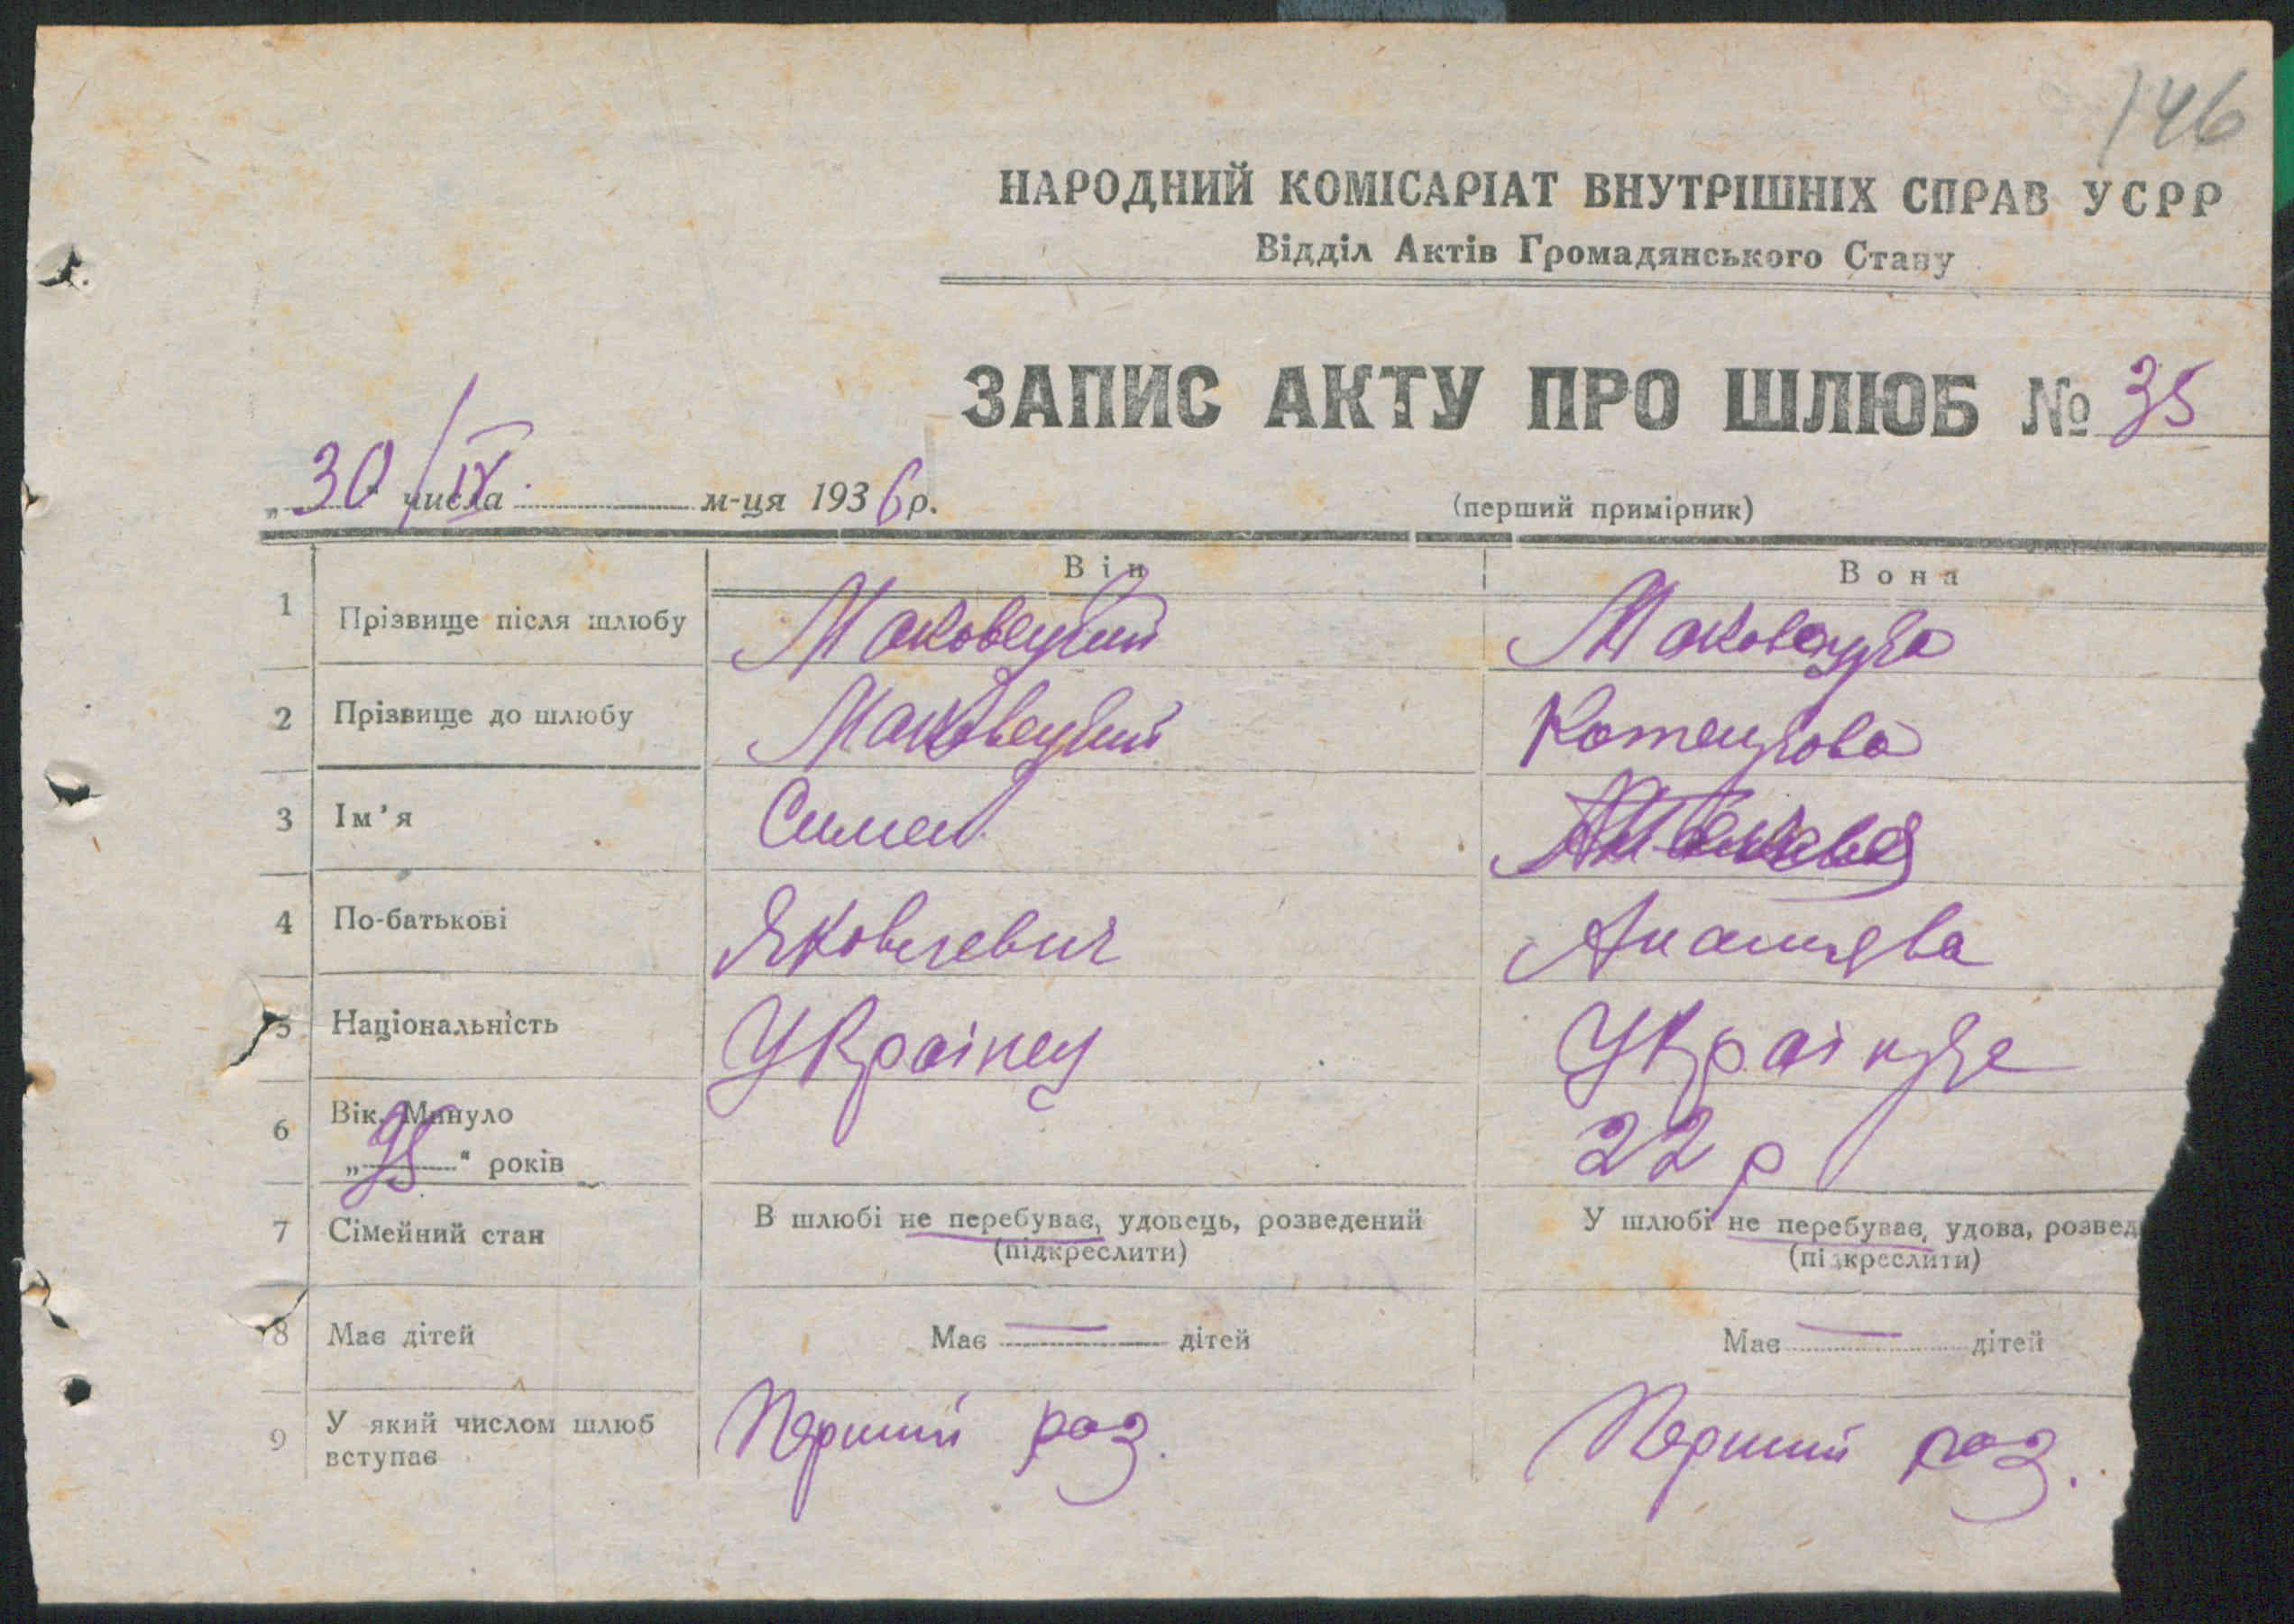 146
НАРОДНИЙ КОМІСАРІАТ ВНУТРІШНІХ СПРАВ УСРР
Відділ Актів Громадянського Стану
ЗАПИС АКТУ ПРО ШЛЮБ № 35
„30/IX“ числа м-ця 1936 р.
(перший примірник)
Він Вона
1 Прізвище після шлюбу Маковецкий Маковецка
2 Прізвище до шлюбу Маковецкий Котецкова
3 Ім'я Симен
4 По-батькові Яковлевич
5 Національність Украінец Украінка
6 Вік. Минуло 22 р
„ “ років
7 Сімейний стан В шлюбі не перебуває, удовець, розведений У шлюбі не перебуває, удова, розвед
(підкреслити) (підкреслити)
8 Має дітей Має — дітей Має — дітей
9 У який числом шлюб Перший раз. Перший раз.
вступає